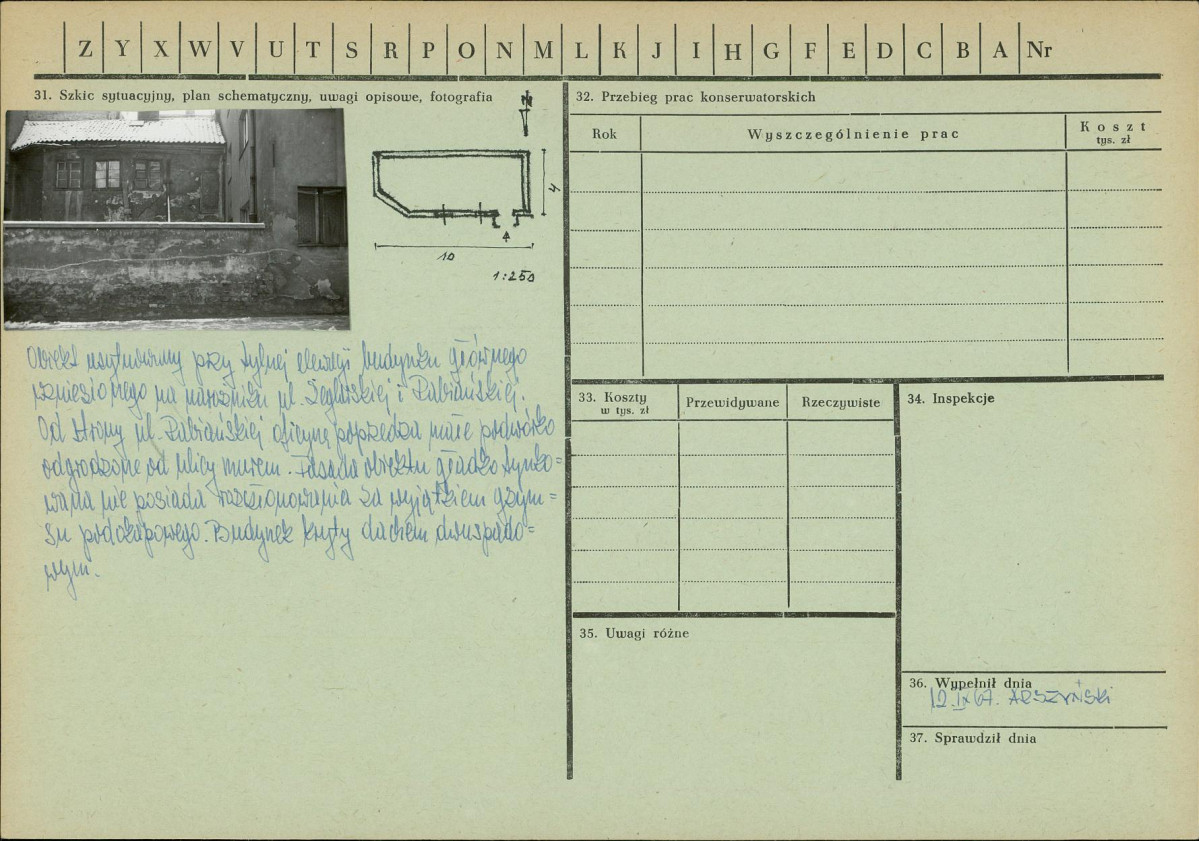 Z Y X W V U T S R P O N M L K J I H G F E D C B A Nr
31. Szkic sytuacyjny, plan schematyczny, uwagi opisowe, fotografia
N
4
10
1:250
Obiekt usytuowany przy tylnej elewacji budynku głównego
wzniesionego na narożniku ul. Żeglarskiej i Rabiańskiej.
Od strony ul. Rabiańskiej oficynę poprzedza małe podwórko
odgrodzone od ulicy murem. Fasada obiektu gładko tynko=
wana nie posiada rozczłonowania za wyjątkiem gzym=
su podokapowego. Budynek kryty dachem dwuspado=
wym.
32. Przebieg prac konserwatorskich
Rok Wyszczególnienie prac Koszt
tys. zł
33. Koszty
w tys. zł
Przewidywane Rzeczywiste
34. Inspekcje
35. Uwagi różne
36. Wypełnił dnia
12.IX 67. ARSZYŃSKI
37. Sprawdził dnia